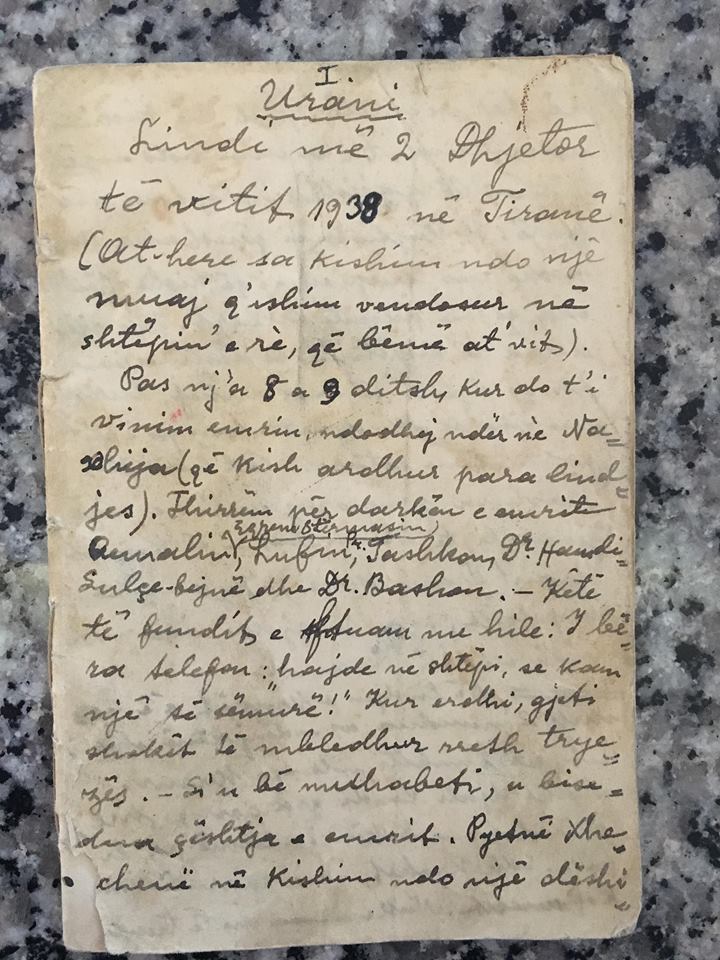 I.
Urani
Lindi më 2 Dhjetor
të vitit 1938 në Tiranë.
(At-here sa kishim ndo një
muaj q'ishim vendosur në
shtëpin' e rè, që bëmë at' vit).
Pas nj'a 8 a 9 ditsh, kur do t'i
vinim emrin, ndodhej ndër ne Na=
xhija (që kish ardhur para lind=
jes). Thirrëm për darkën e emrit
Eqrem Stërmasin,
Qemalin, Lufin, Tashkon, Dr. Hamdi=
Sulçe-bejnë dhe Dr. Bashon. – Këtë
të fundit e ftuam me hile: I bë=
ra telefon: hajde në shtëpi, se kam
një të sëmurë!" Kur erdhi, gjeti
shokët të mbledhur rreth trye=
zës. – Si u bë muthabeti, u bise=
dua çështja e emrit. Pyetnë Xhe=
chenë në kishim ndo një dëshi=